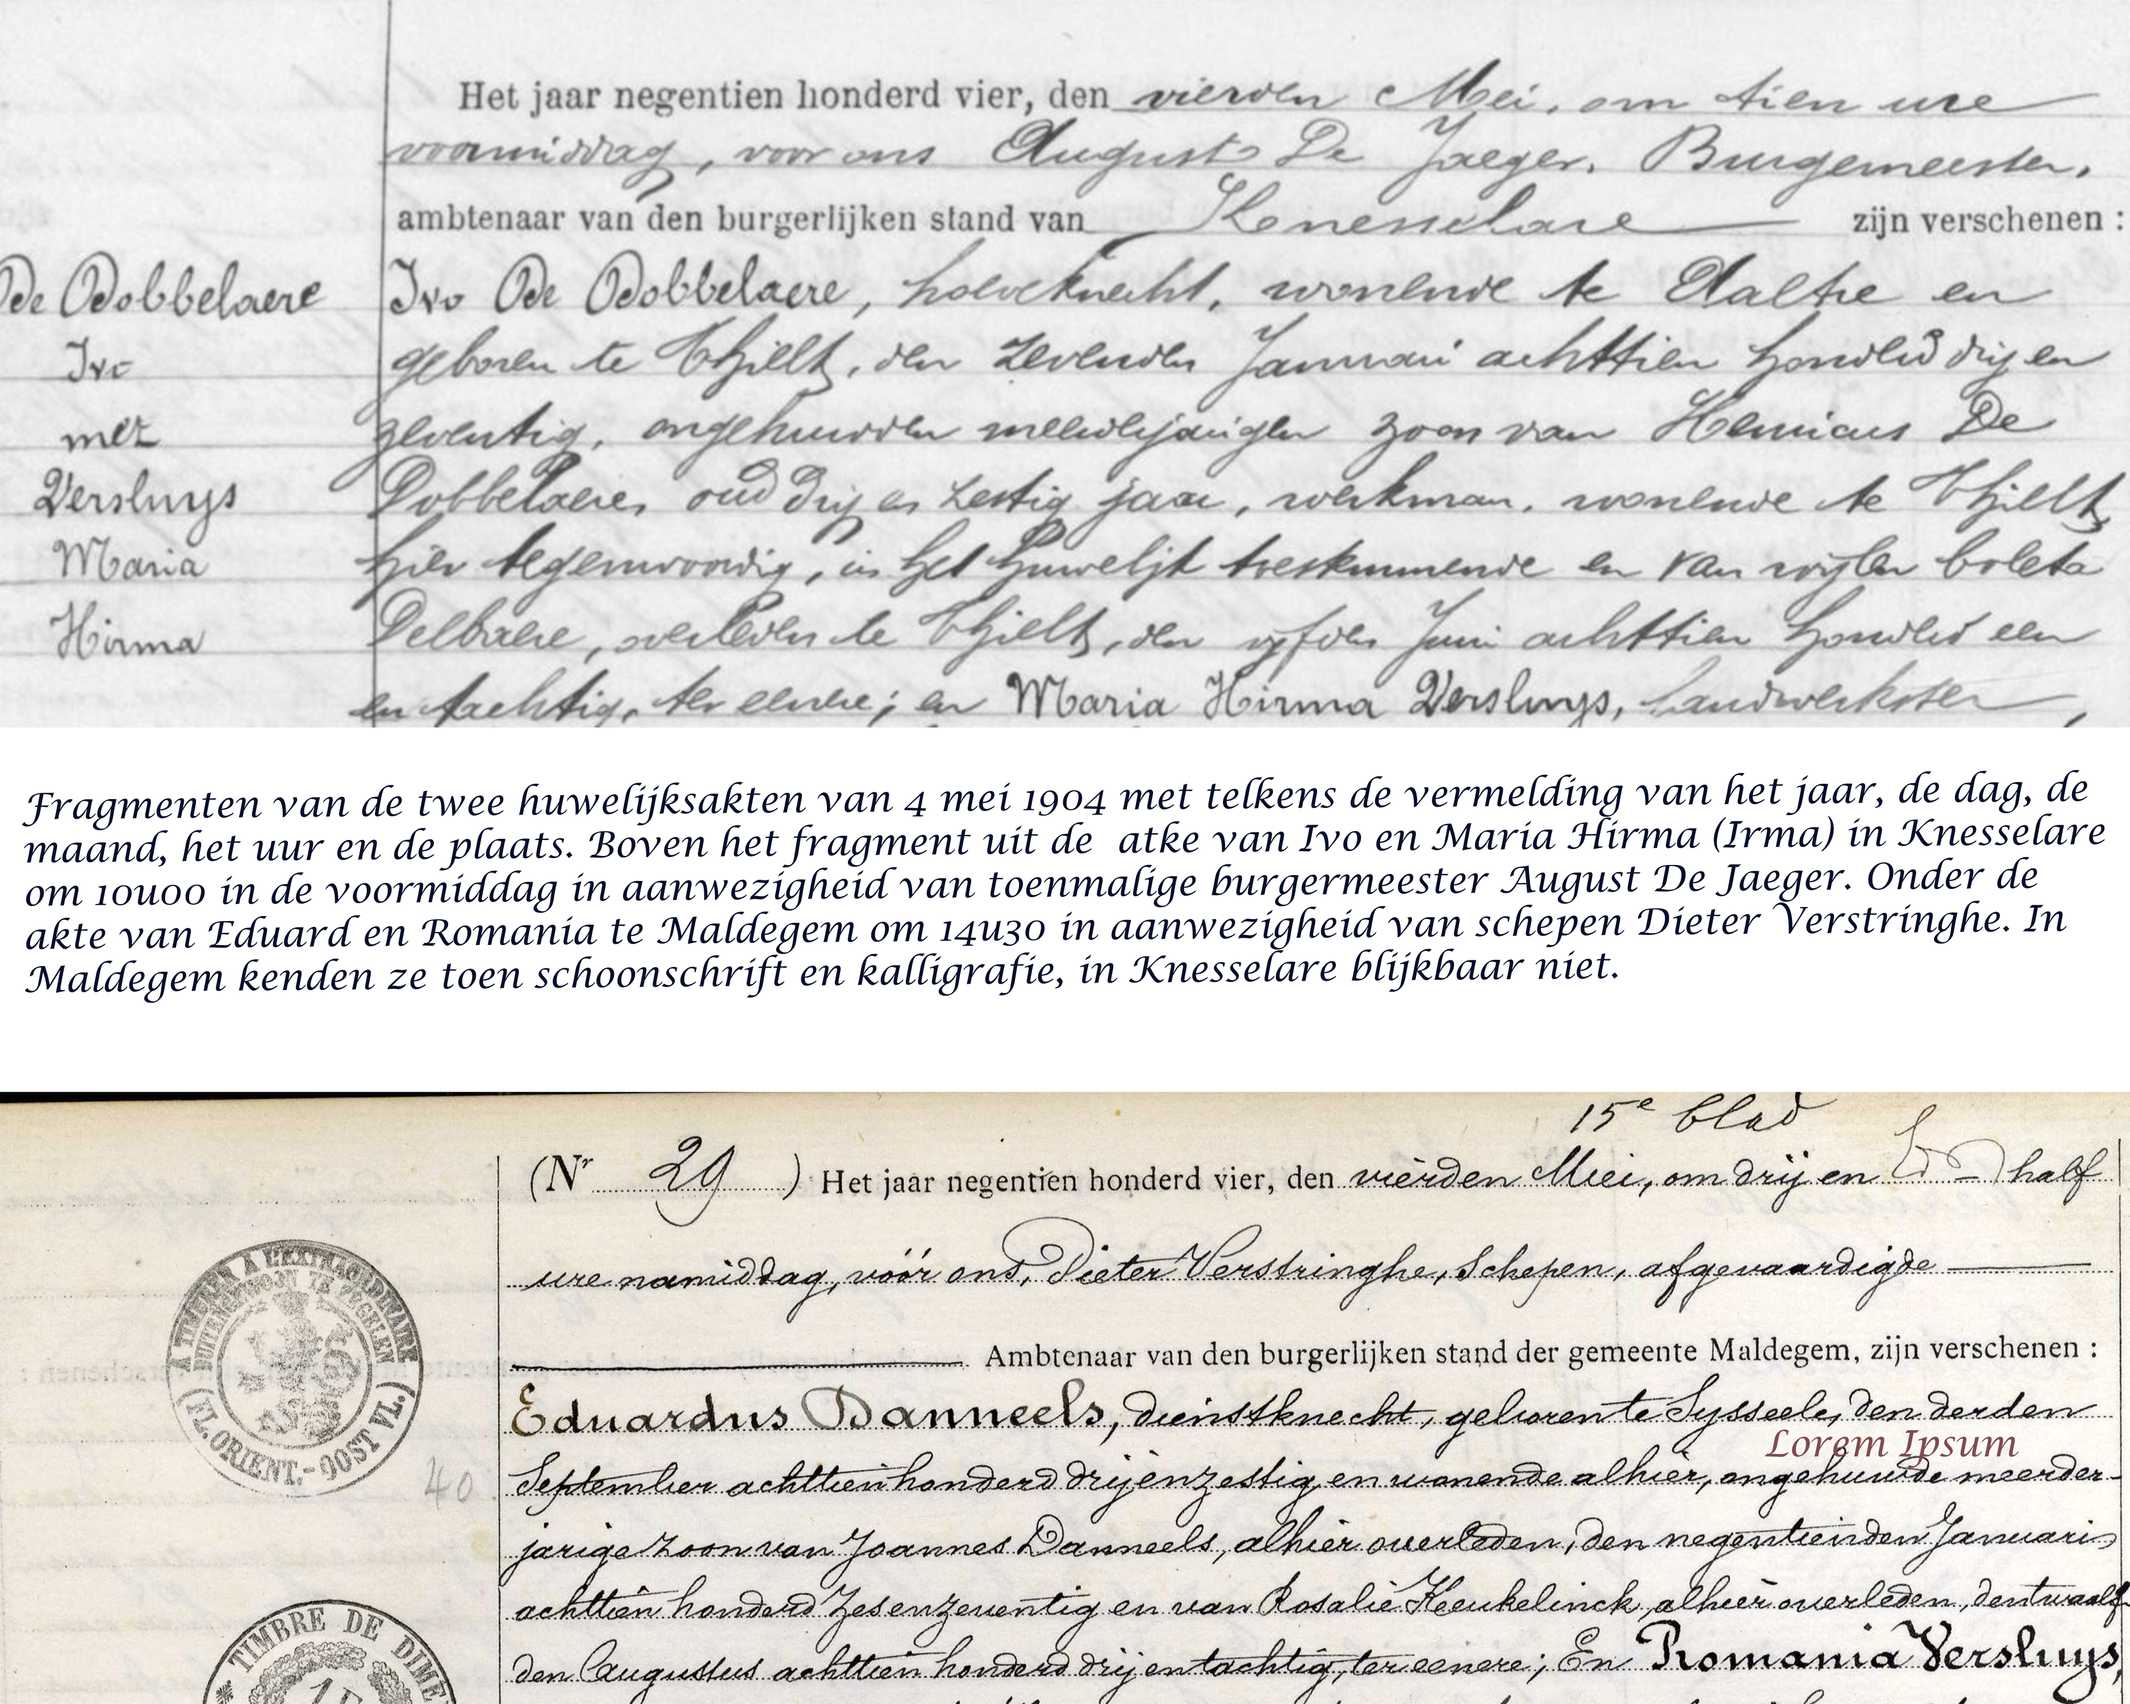 Het jaar negentien honderd vier, den vierden Mei, om tien ure
voormiddag, voor ons August De Jaeger, Burgemeester,
ambtenaar van den burgerlijken stand van Knesselare zijn verschenen :
De Dobbelaere
Ivo
met
Versluys
Maria
Hirma
Ivo De Dobbelaere, hoeveknecht, wonende te Aaltre en
geboren te Thielt, den zevenden Januari achttien honderd drij en
zeventig, ongehuwden meerderjarigen zoon van Henricus De
Dobbelaere, oud drij en zestig jaar, werkman, wonende te Thielt,
hier tegenwoordig, in het huwelijk toestemmende en van wijlen Coleta
Delbaere, overleden te Thielt, den vijfden Juni achttien honderd een
en tachtig, ter eenere; en Maria Hirma Versluys, landwerkster,
Fragmenten van de twee huwelijksakten van 4 mei 1904 met telkens de vermelding van het jaar, de dag, de
maand, het uur en de plaats. Boven het fragment uit de atke van Ivo en Maria Hirma (Irma) in Knesselare
om 10u00 in de voormiddag in aanwezigheid van toenmalige burgermeester August De Jaeger. Onder de
akte van Eduard en Romania te Maldegem om 14u30 in aanwezigheid van schepen Dieter Verstringhe. In
Maldegem kenden ze toen schoonschrift en kalligrafie, in Knesselare blijkbaar niet.
15e blad
(Nr 29 ) Het jaar negentien honderd vier, den vierden Mei, om drij en half
ure namiddag, vóór ons, Pieter Verstringhe, Schepen, afgevaardigde
Ambtenaar van den burgerlijken stand der gemeente Maldegem, zijn verschenen :
Eduardus Danneels, dienstknecht, geboren te Sysseele, den derden
Lorem Ipsum
September achttien honderd drij en zestig, en wonende alhier, ongehuwde meerder-
jarige zoon van Joannes Danneels, alhier overleden, den negentienden Januari
achttien honderd zes en zeventig en van Rosalie Keukelinck, alhier overleden, den twaalf-
den Augustus achttien honderd drij en tachtig, ter eenere; En Romania Versluys,
A TIMBRER A L'EXTRAORDINAIRE
BUITENGEWOON TE ZEGELEN
(FL. ORIENT.-OOST VL.)
40
TIMBRE DE DIME